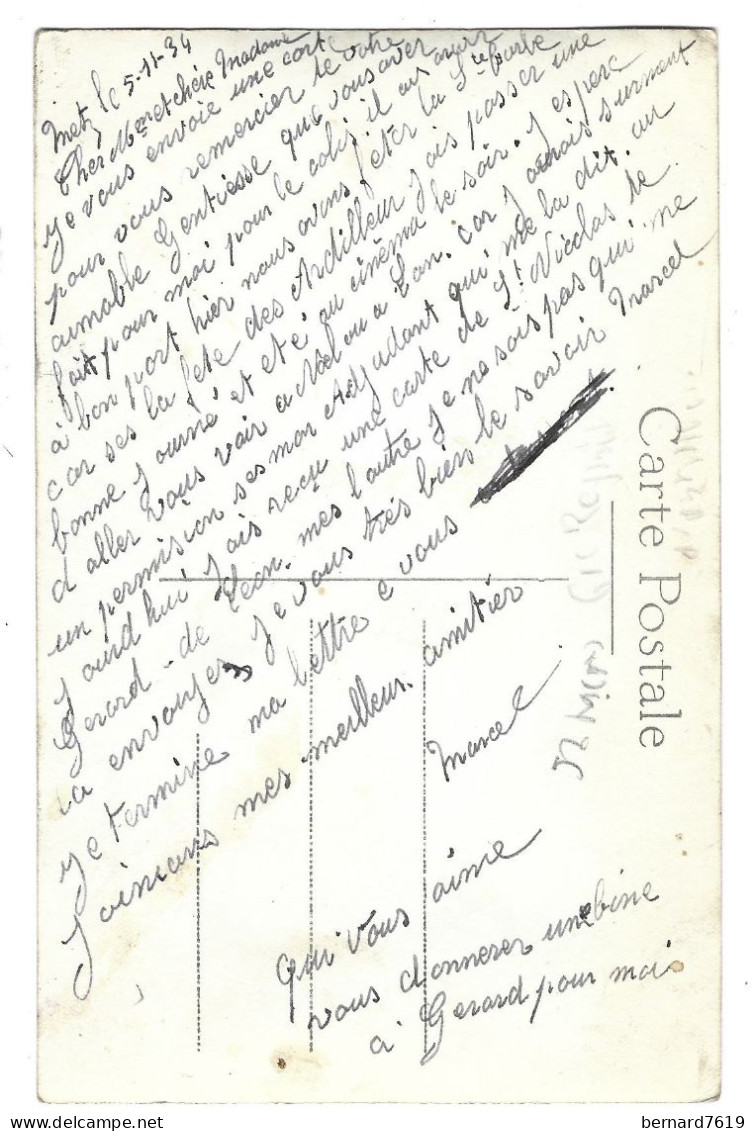 Metz le 5-11-34
Cher Mr et chère Madame
Je vous envoie une carte
pour vous remercier de votre
aumable Gentiesse que vous aver
fait pour moi pour le colis il
à bon port hier nous avons fêter la Ste Barbe
car ses la fête des Ardilleur J'ais passer une
bonne Journé et eté au cinéma le soir. J espere
d'aller vous voir a Noel ou a L'an. car J aurais surment
un permision ses mon Adjudant qui me la dit. au
Jourd hui J ais reçu une carte de St Nicolas de
Gerard - de Leon. mes l'autre Je ne sais pas qui me
la envoyer Je vous très bien le savoir Marcel
Je termine ma lettre e vous
Joinians mes meilleur amitier
Marcel
qui vous aime
vous donnerer une bine
à Gerard pour moi
Carte Postale
St Nicolas
bernard7619